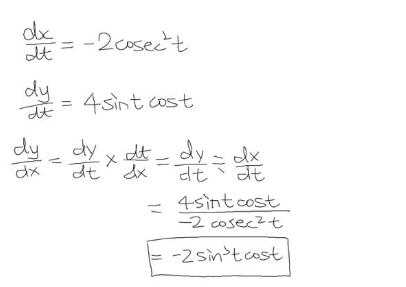 dx/dt = -2cosec²t
dy/dt = 4sint cost
dy/dx = dy/dt × dt/dx = dy/dt ÷ dx/dt
= 4sint cost / -2 cosec²t
= -2sin³t cost